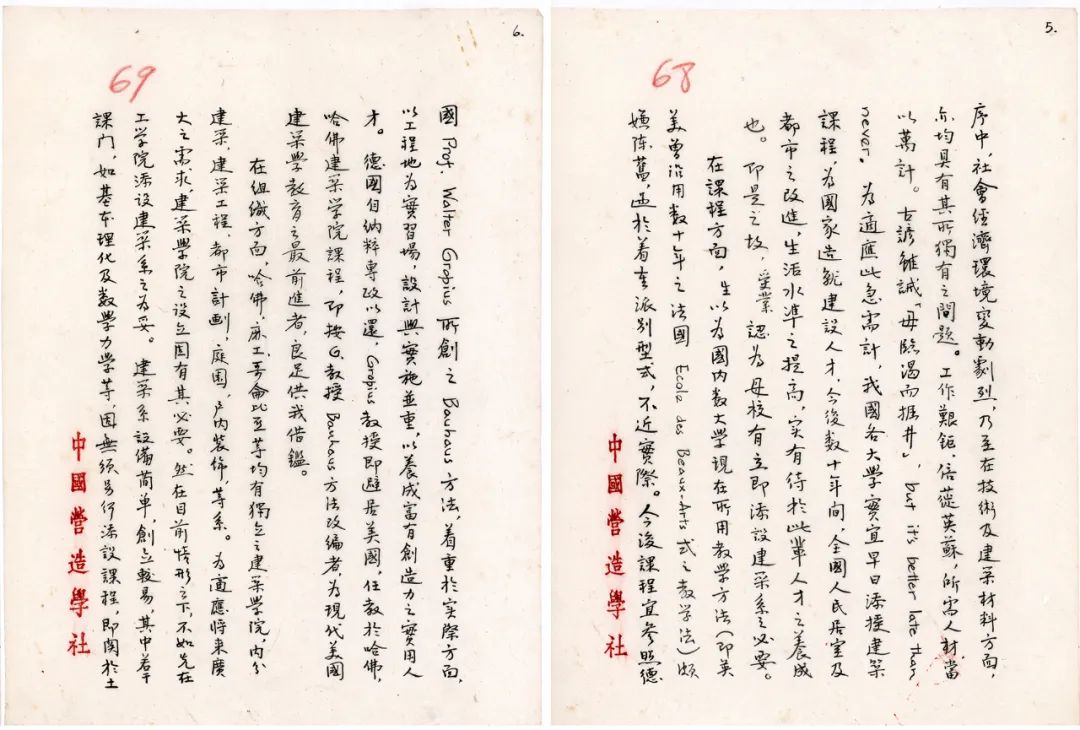 5.
68
序中，社會經濟環境变動劇烈，乃至在技術及建築材料方面，
亦均具有其所獨有之問題。工作艱鉅，倍蓰英蘇，所需人材當
以萬計。古諺雖誡「毋臨渴而掘井」，but it's better late than
never。為適應此急需計，我國各大學實宜早日添授建築
課程，為國家造就建設人才，今後數十年間，全國人民居室及
都市之改進，生活水準之提高，实有待於此輩人才之養成
也。即是之故，受業認為母校有立即添設建築系之必要。
在課程方面，生以為國内数大学現在所用教学方法（即英
美曾沿用数十年之法國 Ecole des Beaux-Arts 式之教学法）頗
嫌陈舊，過於着重派别型式，不近實際。今後課程宜参照德
中國營造學社
6.
69
國 Prof. Walter Gropius 所創之 Bauhaus 方法，着重於实際方面，
以工程地为實習場，設計與實施並重，以養成富有創造力之實用人
才。德國自納粹專政以還，Gropius 教授即避居美國，任教於哈佛，
哈佛建築学院課程，即按G.教授 Bauhaus 方法改編者，为現代美國
建築學教育之最前進者，良足供我借鑑。
在組織方面，哈佛、麻工、哥倫比亚等均有獨立之建築学院，内分
建築，建築工程，都市計劃，庭園，户内裝飾，等系。为適應將来廣
大之需求，建築學院之設立固有其必要。然在目前情形之下，不如先在
工学院添設建築系之为妥。建築系設備简单，創立較易，其中若干
課门，如基本理化及数学力学等，固無須另行添設課程，即関於土
中國營造學社